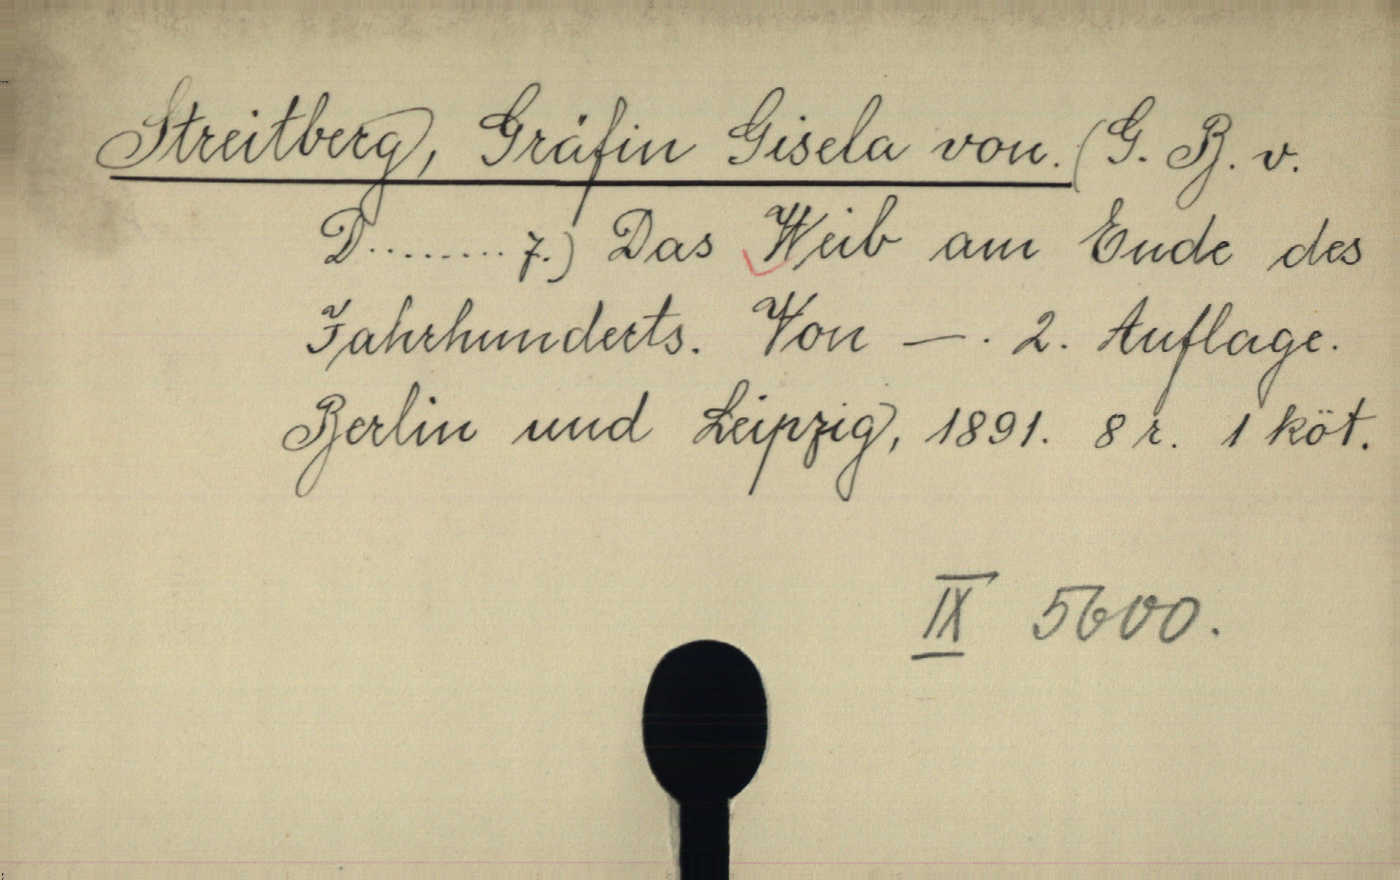 Streitberg, Gräfin Gisela von. (G. B. v.
D......... 7.) Das Weib am Ende des
Jahrhunderts. Von —. 2. Auflage.
Berlin und Leipzig, 1891. 8 r. 1 köt.
IX 5600.